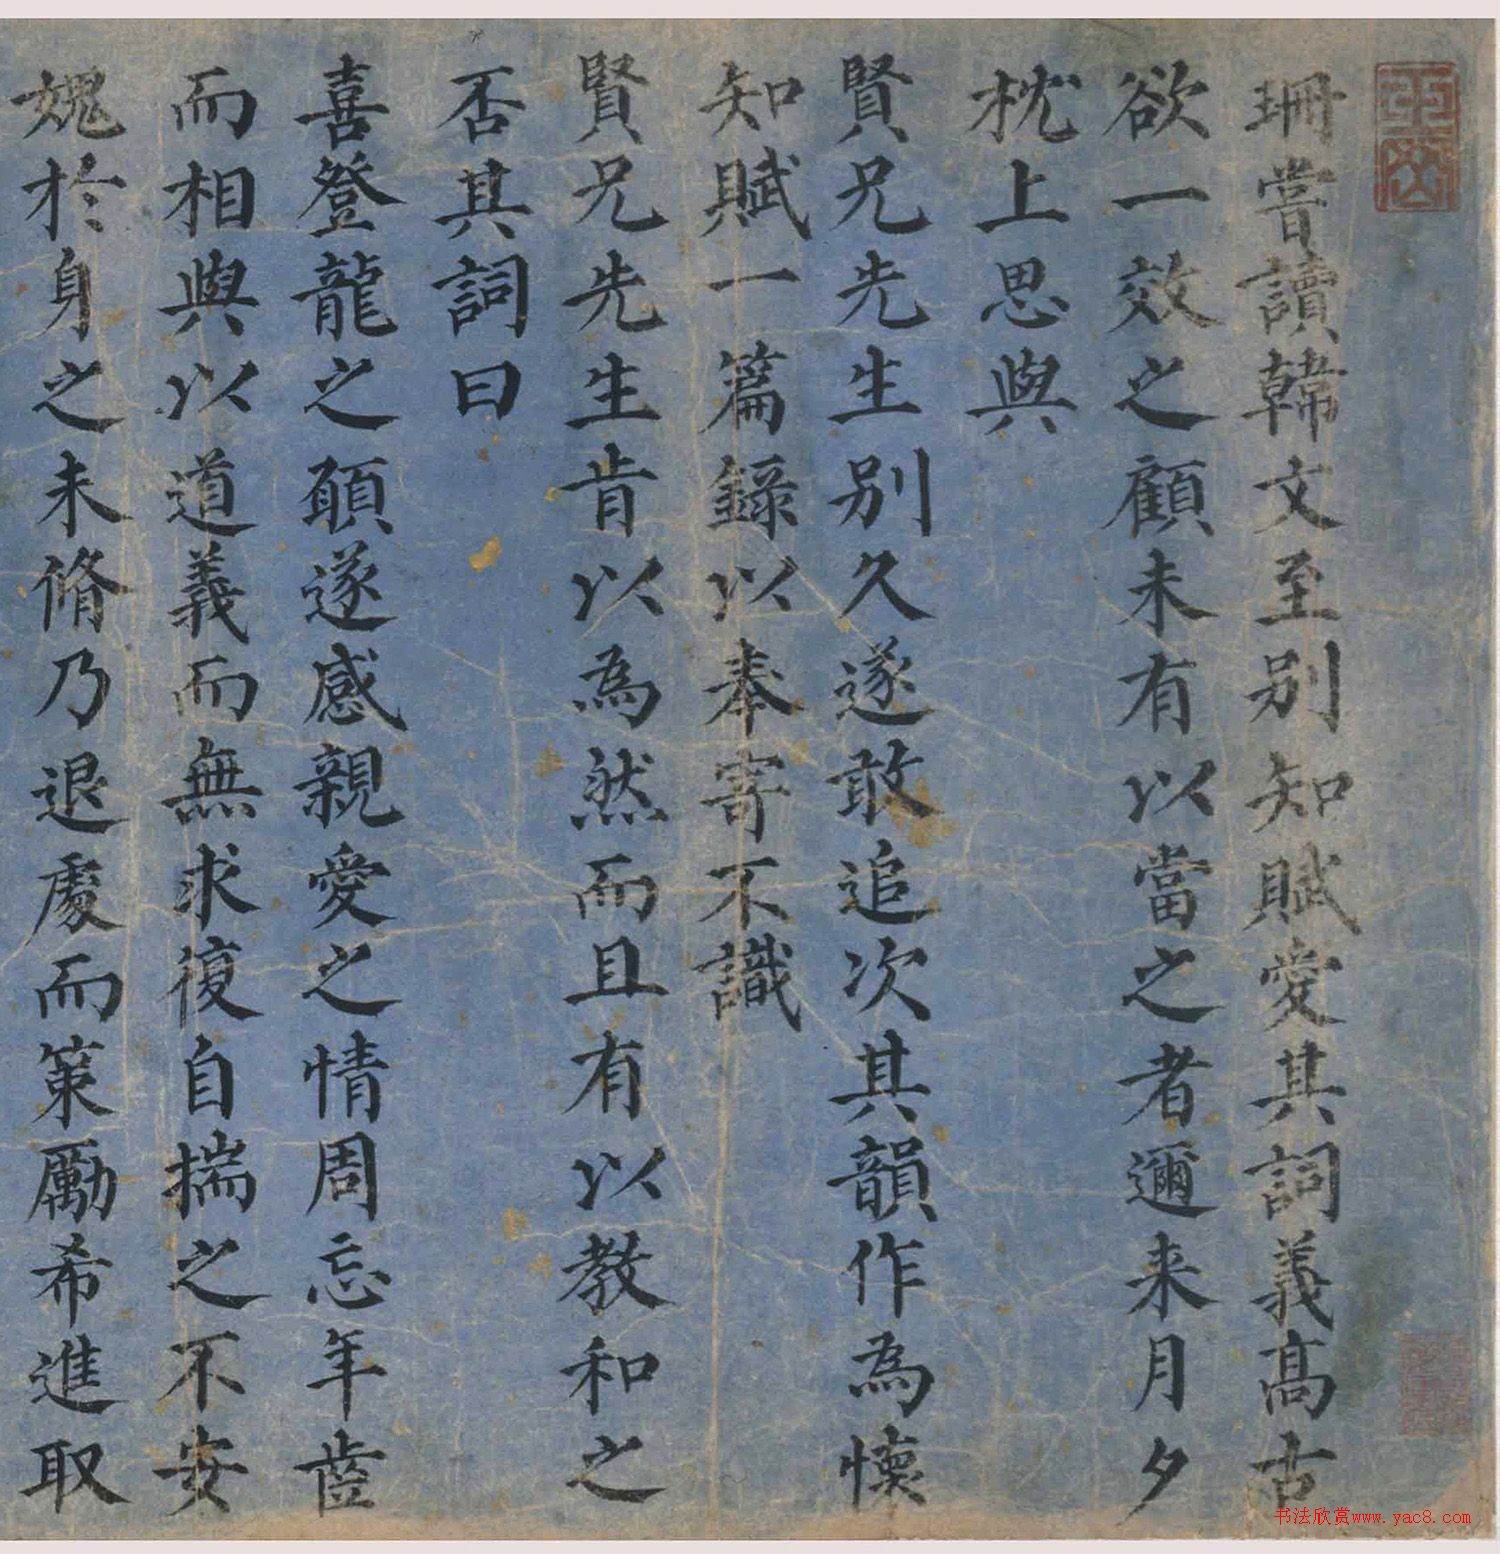 珊嘗讀韓文至别知賦愛其詞義髙古
欲一效之顧未有以當之者邇来月夕
枕上思與
賢兄先生别久遂敢追次其韻作為懐
知賦一篇録以奉寄不識
賢兄先生肯以為然而且有以教和之
否其詞曰
喜登龍之願遂感親愛之情周忘年齒
而相與以道義而無求復自揣之不安
媿於身之未脩乃退處而策勵希進取
书法欣赏www.yac8.com